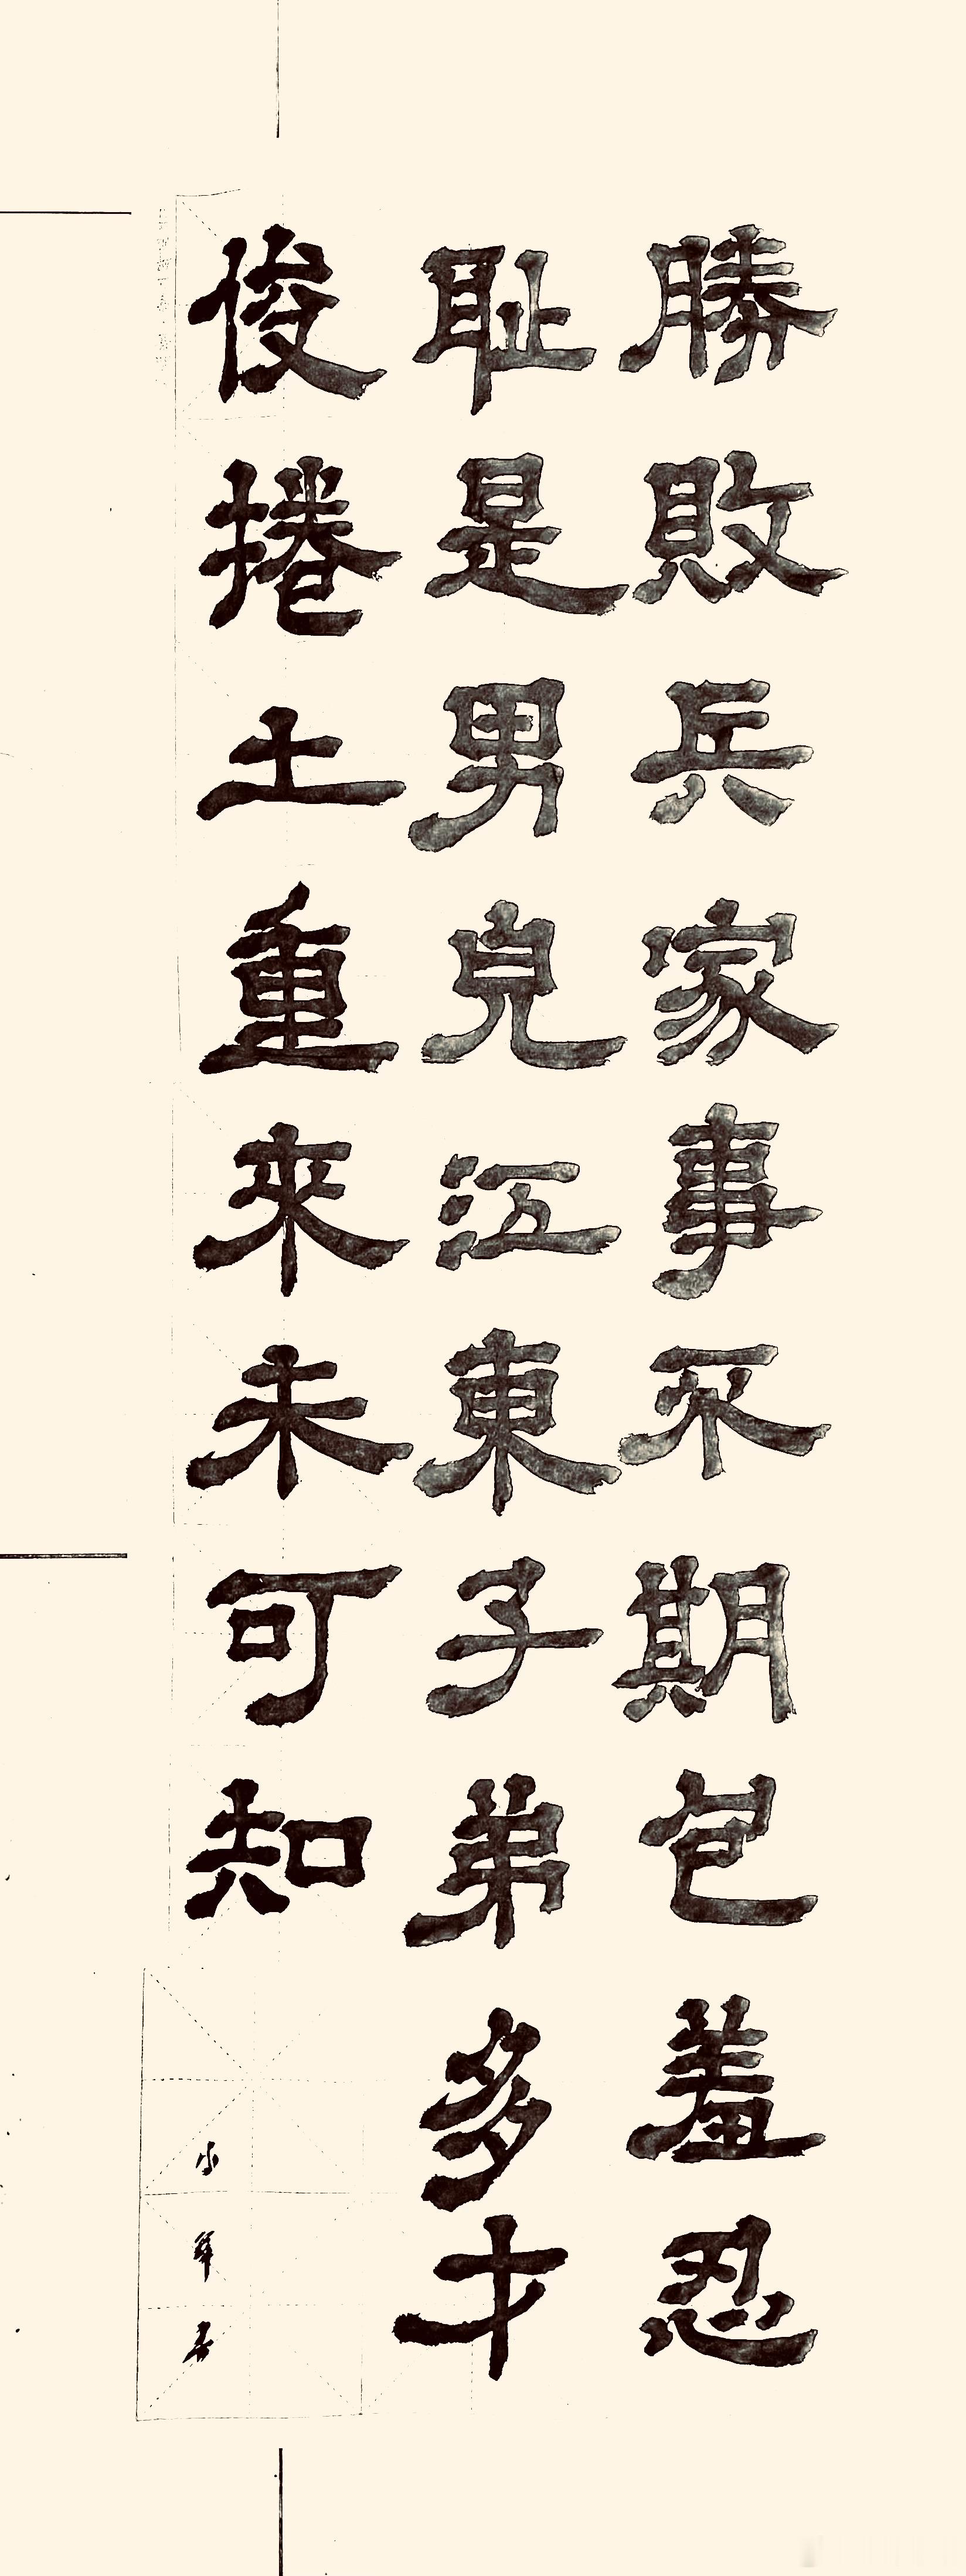 勝敗兵家事不期包羞忍
耻是男兒江東子弟多才
俊捲土重來未可知